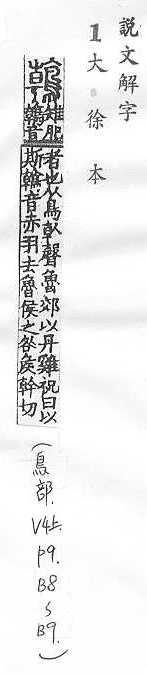 説文解字
1 大．徐本
鶾
雉肥
鶾音
者也从鳥倝聲魯郊以丹雞祝曰以
斯鶾音赤羽去魯侯之咎矦幹切
(鳥部．V4上．P9．B8 ~ B9．)